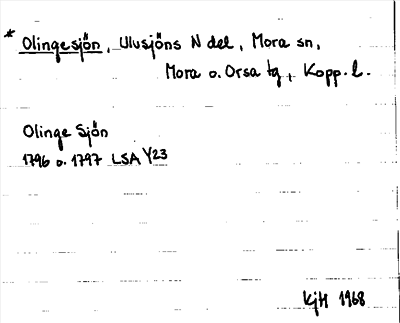 * Olingesjön, Ulusjöns N del, Mora sn,
Mora o. Orsa tg, Kopp. l.
Olinge Sjön
1796 o. 1797 LSA Y23
KjH 1968